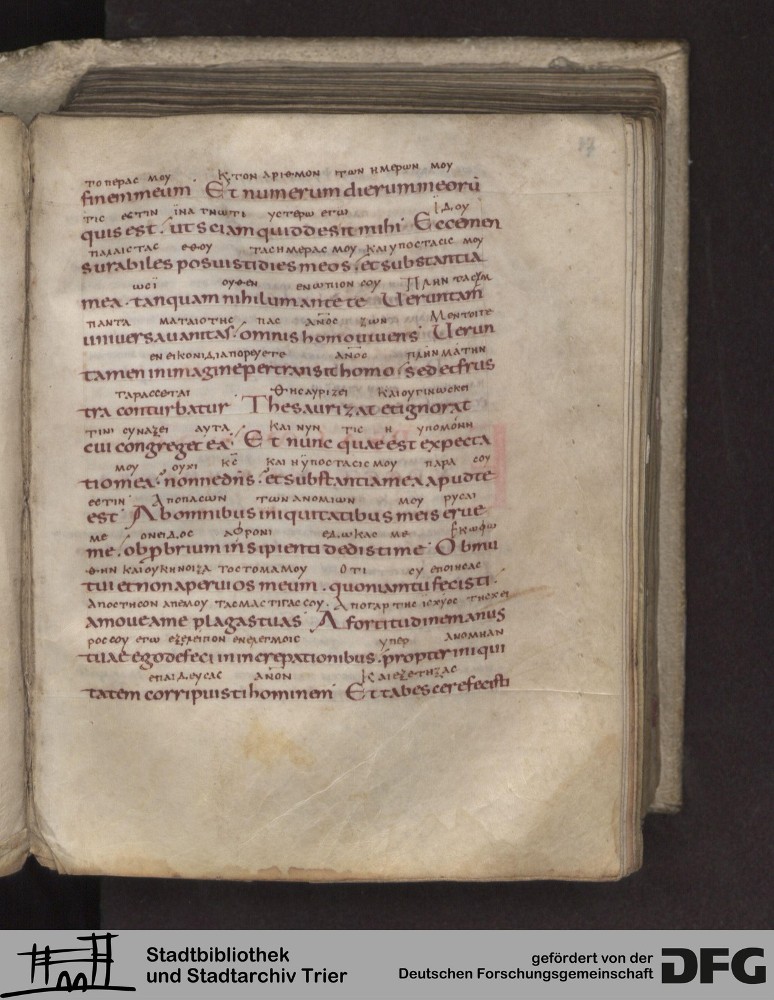 17
ΤΟ ΠΕΡΑC ΜΟΥ Κ ΤΟΝ ΑΡΙΘΜΟΝ ΤΩΝ ΗΜΕΡΩΝ ΜΟΥ
finem meum Et numerum dierum meorū
ΤΙC ΕCΤΙΝ ΙΝΑ ΓΝΩΤΙ ΥCΤΕΡΩ ΕΓΩ ΙΔΟΥ
quis est. ut sciam quid desit mihi Ecce men
ΠΑΛΑΙCΤΑC ΕΘΟΥ ΤΑC ΗΜΕΡΑC ΜΟΥ ΚΑΙ ΥΠΟCΤΑCΙC ΜΟΥ
surabiles posuisti dies meos. et substantia
ΩCΙ ΟΥΘΕΝ ΕΝΩΠΙΟΝ COY ΠΛΗΝ
mea. tanquam nihilum ante te Veruntam
ΠΑΝΤΑ ΜΑΤΑΙΟΤΗC ΠΑC ΑΝΟC ΖΩΝ ΜΕΝΤΟΙΓΕ
universa vanitas. omnis homo vivens Verun
ΕΝ ΕΙΚΟΝΙ ΔΙΑΠΟΡΕΥΕΤΕ ΑΝΟC ΠΛΗΝ ΜΑΤΗΝ
tamen in imagine pertransit homo. sed et frus
ΤΑΡΑCCΕΤΑΙ ΘΗCΑΥΡΙΖΕΙ ΚΑΙ ΟΥ ΓΙΝΩCΚΕΙ
tra conturbatur Thesaurizat et ignorat
ΤΙΝΙ CΥΝΑΞΕΙ ΑΥΤΑ ΚΑΙ ΝΥΝ ΤΙC Η ΥΠΟΜΟΝΗ
cui congreget ea. Et nunc quae est expecta
ΜΟΥ ΟΥΧΙ ΚC ΚΑΙ Η ΥΠΟCΤΑCΙC ΜΟΥ ΠΑΡΑ COY
tio mea. nonne dn̄s. et substantia mea apud te
ΕCΤΙΝ ΑΠΟ ΠΑCΩΝ ΤΩΝ ΑΝΟΜΙΩΝ ΜΟΥ ΡΥCΑΙ
est Ab omnibus iniquitatibus meis erue
ΜΕ ΟΝΕΙΔΟC ΑΦΡΟΝΙ ΕΔΩΚΑC ΜΕ ΕΚΩΦΩ
me. obprbrium insipienti dedisti me Obmu
ΘΗΝ ΚΑΙ ΟΥΚ ΗΝΟΙΞΑ ΤΟ CΤΟΜΑ ΜΟΥ ΟΤΙ CΥ ΕΠΟΙΗCΑC
tui et non aperui os meum. quoniam tu fecisti.
ΑΠΟCΤΗCΟΝ ΑΠ ΕΜΟΥ ΤΑC ΜΑCΤΙΓΑC COY. ΑΠΟ ΓΑΡ ΤΗC ΙCΧΥΟC ΤΗC ΧΕΙ
amove a me plagas tuas A fortitudine manus
ΡΟC COY ΕΓΩ ΕΞΕΛΕΙΠΟΝ ΕΝ ΕΛΕΓΜΟΙC ΥΠΕΡ ΑΝΟΜΙΑΝ
tuae ego defeci in increpationibus. propter iniqui
ΕΠΑΙΔΕΥCΑC ΑΝΟΝ ΚΑΙ ΕΞΕΤΗΞΑC
tatem corripuisti hominem Et tabescere fecisti
Stadtbibliothek
und Stadtarchiv Trier
gefördert von der
Deutschen Forschungsgemeinschaft
DFG